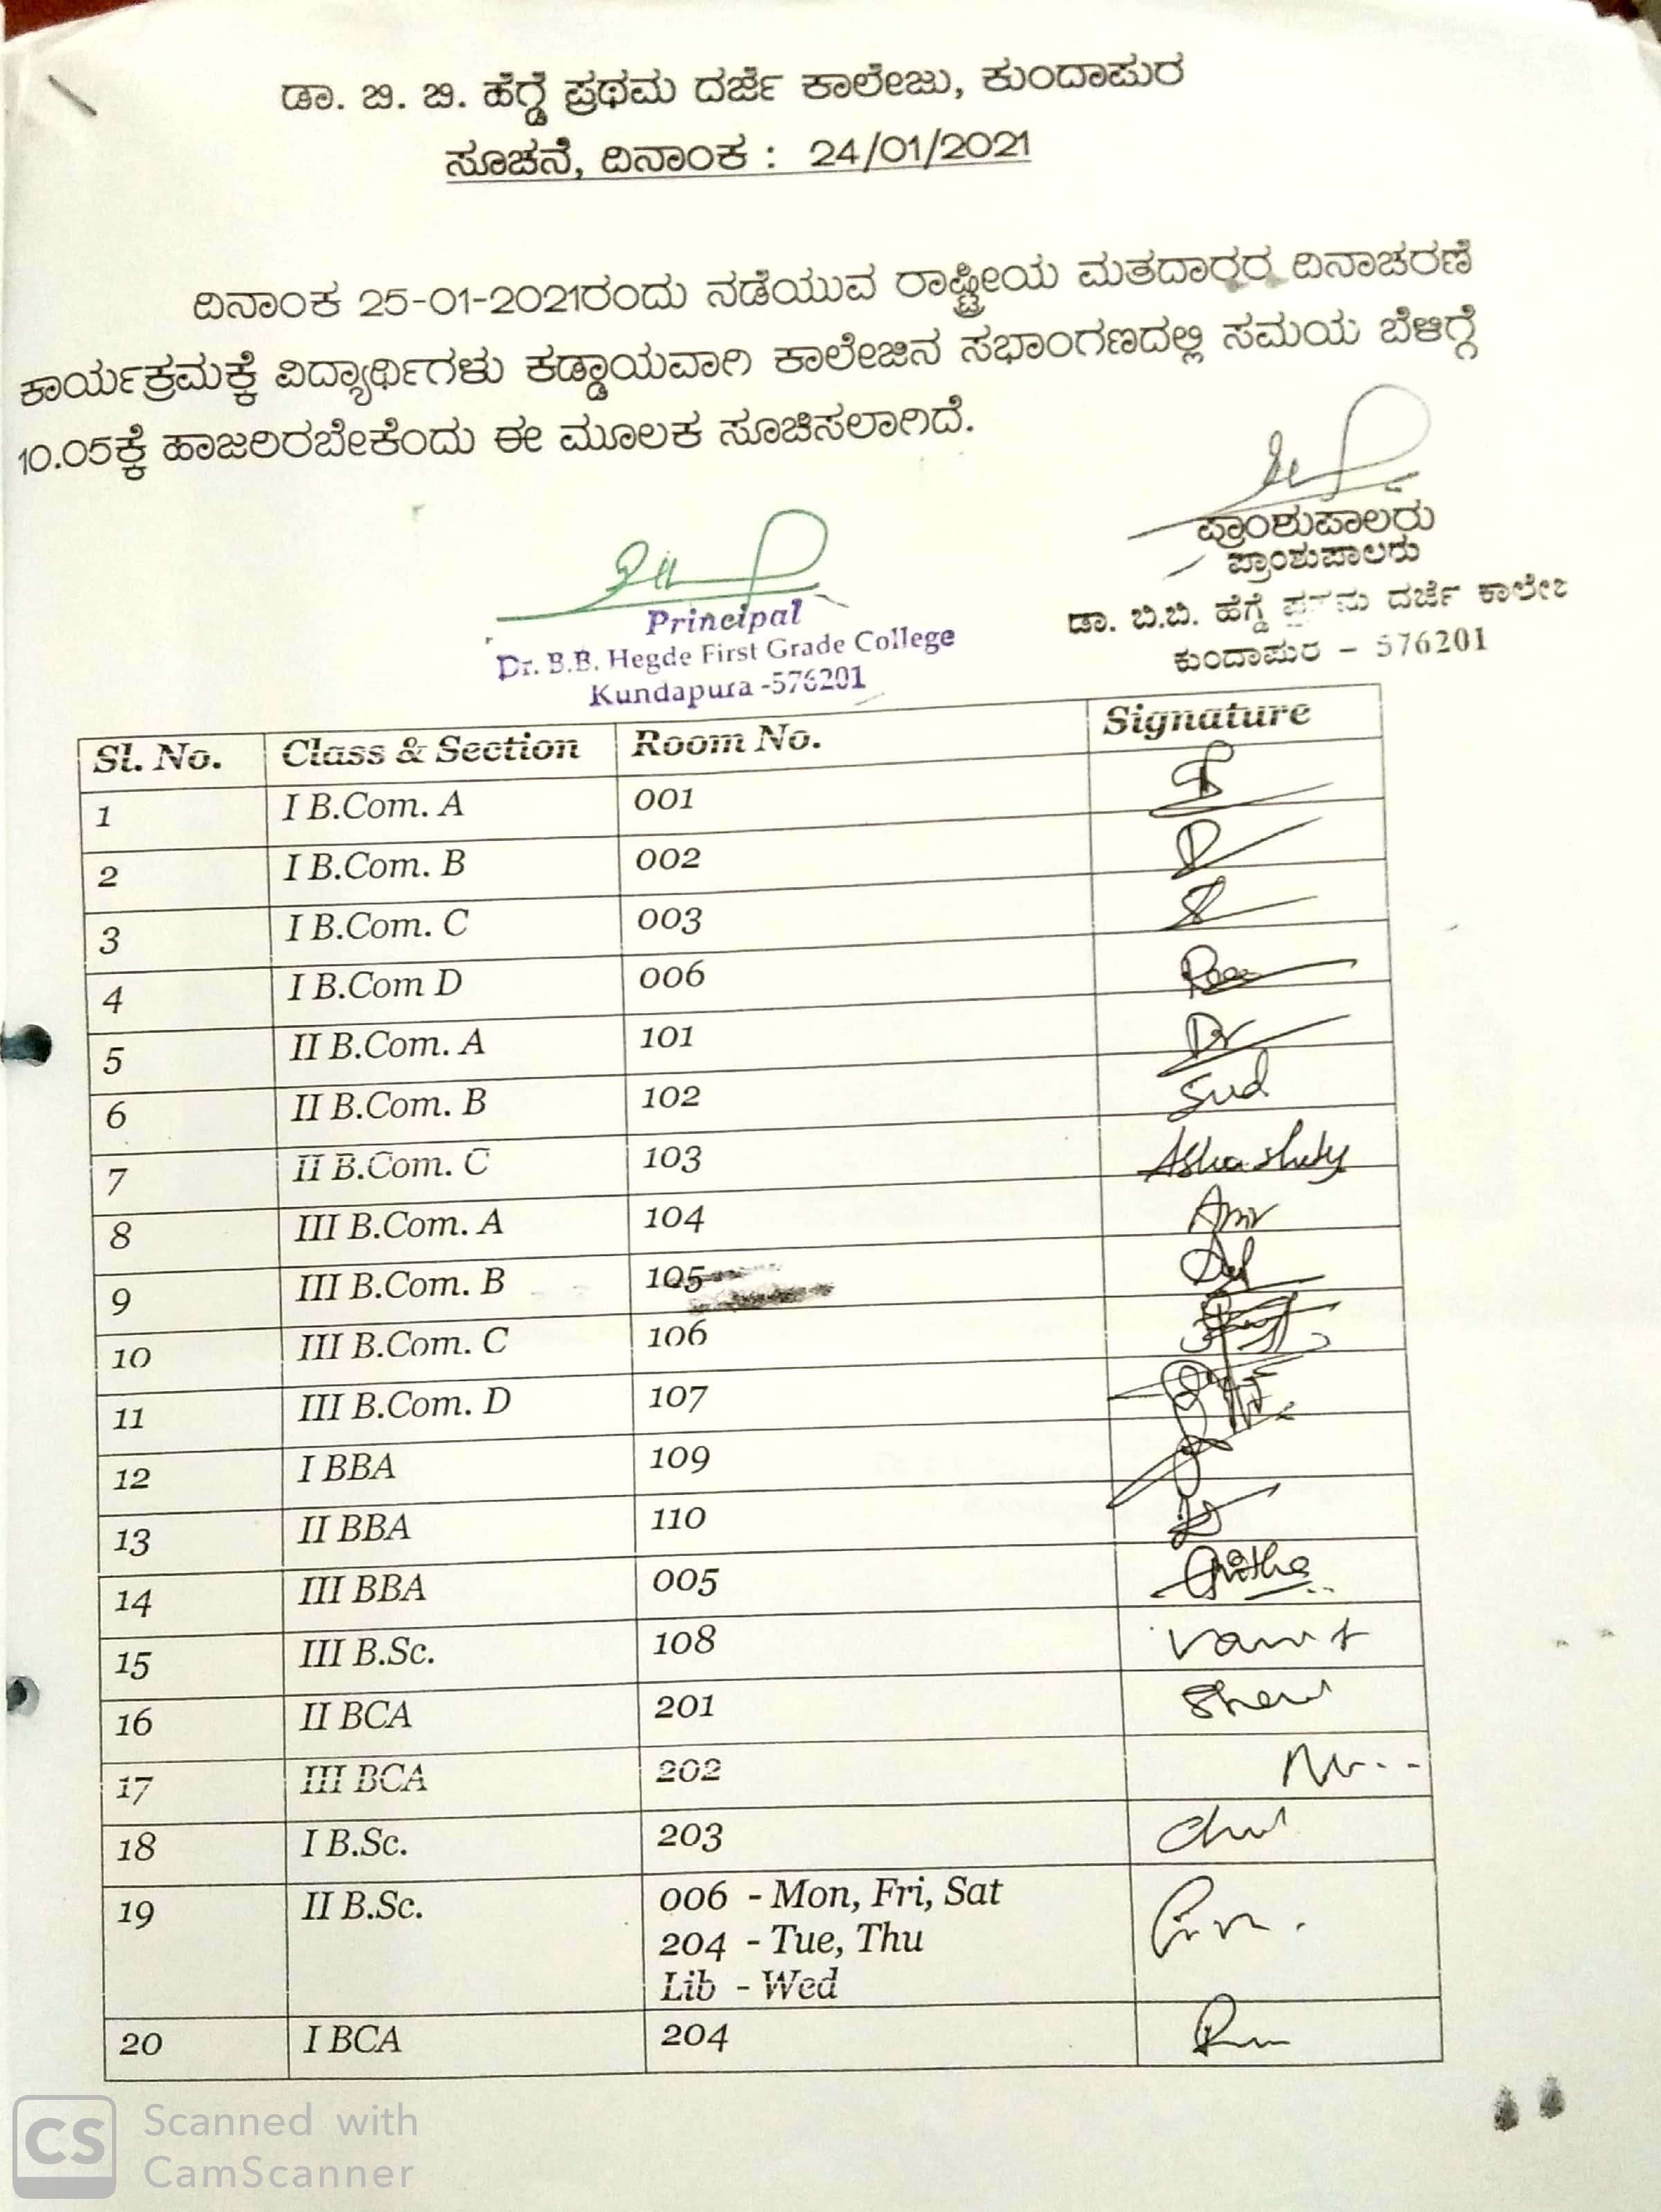 ಡಾ. ಬಿ. ಬಿ. ಹೆಗ್ಡೆ ಪ್ರಥಮ ದರ್ಜೆ ಕಾಲೇಜು, ಕುಂದಾಪುರ
ಸೂಚನೆ, ದಿನಾಂಕ : 24/01/2021
ದಿನಾಂಕ 25-01-2021ರಂದು ನಡೆಯುವ ರಾಷ್ಟ್ರೀಯ ಮತದಾರರ ದಿನಾಚರಣೆ
ಕಾರ್ಯಕ್ರಮಕ್ಕೆ ವಿದ್ಯಾರ್ಥಿಗಳು ಕಡ್ಡಾಯವಾಗಿ ಕಾಲೇಜಿನ ಸಭಾಂಗಣದಲ್ಲಿ ಸಮಯ ಬೆಳಿಗ್ಗೆ
10.05ಕ್ಕೆ ಹಾಜರಿರಬೇಕೆಂದು ಈ ಮೂಲಕ ಸೂಚಿಸಲಾಗಿದೆ.
ಪ್ರಾಂಶುಪಾಲರು
ಪ್ರಾಂಶುಪಾಲರು
ಡಾ. ಬಿ.ಬಿ. ಹೆಗ್ಡೆ ದರ್ಜೆ
ಕುಂದಾಪುರ – 576201
Principal
Dr. B.B. Hegde First Grade College
Kundapura -576201
Sl. No. Class & Section Room No. Signature
1 I B.Com. A 001
2 I B.Com. B 002
3 I B.Com. C 003
4 I B.Com D 006
5 II B.Com. A 101
6 II B.Com. B 102
7 II B.Com. C 103
8 III B.Com. A 104
9 III B.Com. B 105
10 III B.Com. C 106
11 III B.Com. D 107
12 I BBA 109
13 II BBA 110
14 III BBA 005
15 III B.Sc. 108
16 II BCA 201
17 III BCA 202
18 I B.Sc. 203
19 II B.Sc. 006 - Mon, Fri, Sat
204 - Tue, Thu
Lib - Wed
20 I BCA 204
CS Scanned with
CamScanner